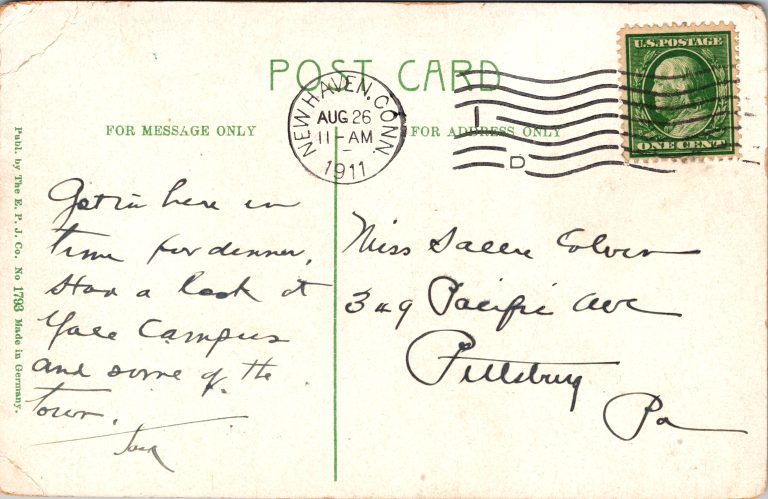 POST CARD
FOR MESSAGE ONLY
FOR ADDRESS ONLY
NEW HAVEN, CONN.
AUG 26
11-AM
1911
D
U.S. POSTAGE
ONE CENT
Publ. by The E. P. J. Co. No 1793 Made in Germany.
Got in here in
time for dinner,
a look at
Yale Campus
and some of the
town.
Miss Sallie Colvin
349 Pacific Ave
Pittsburg
Pa